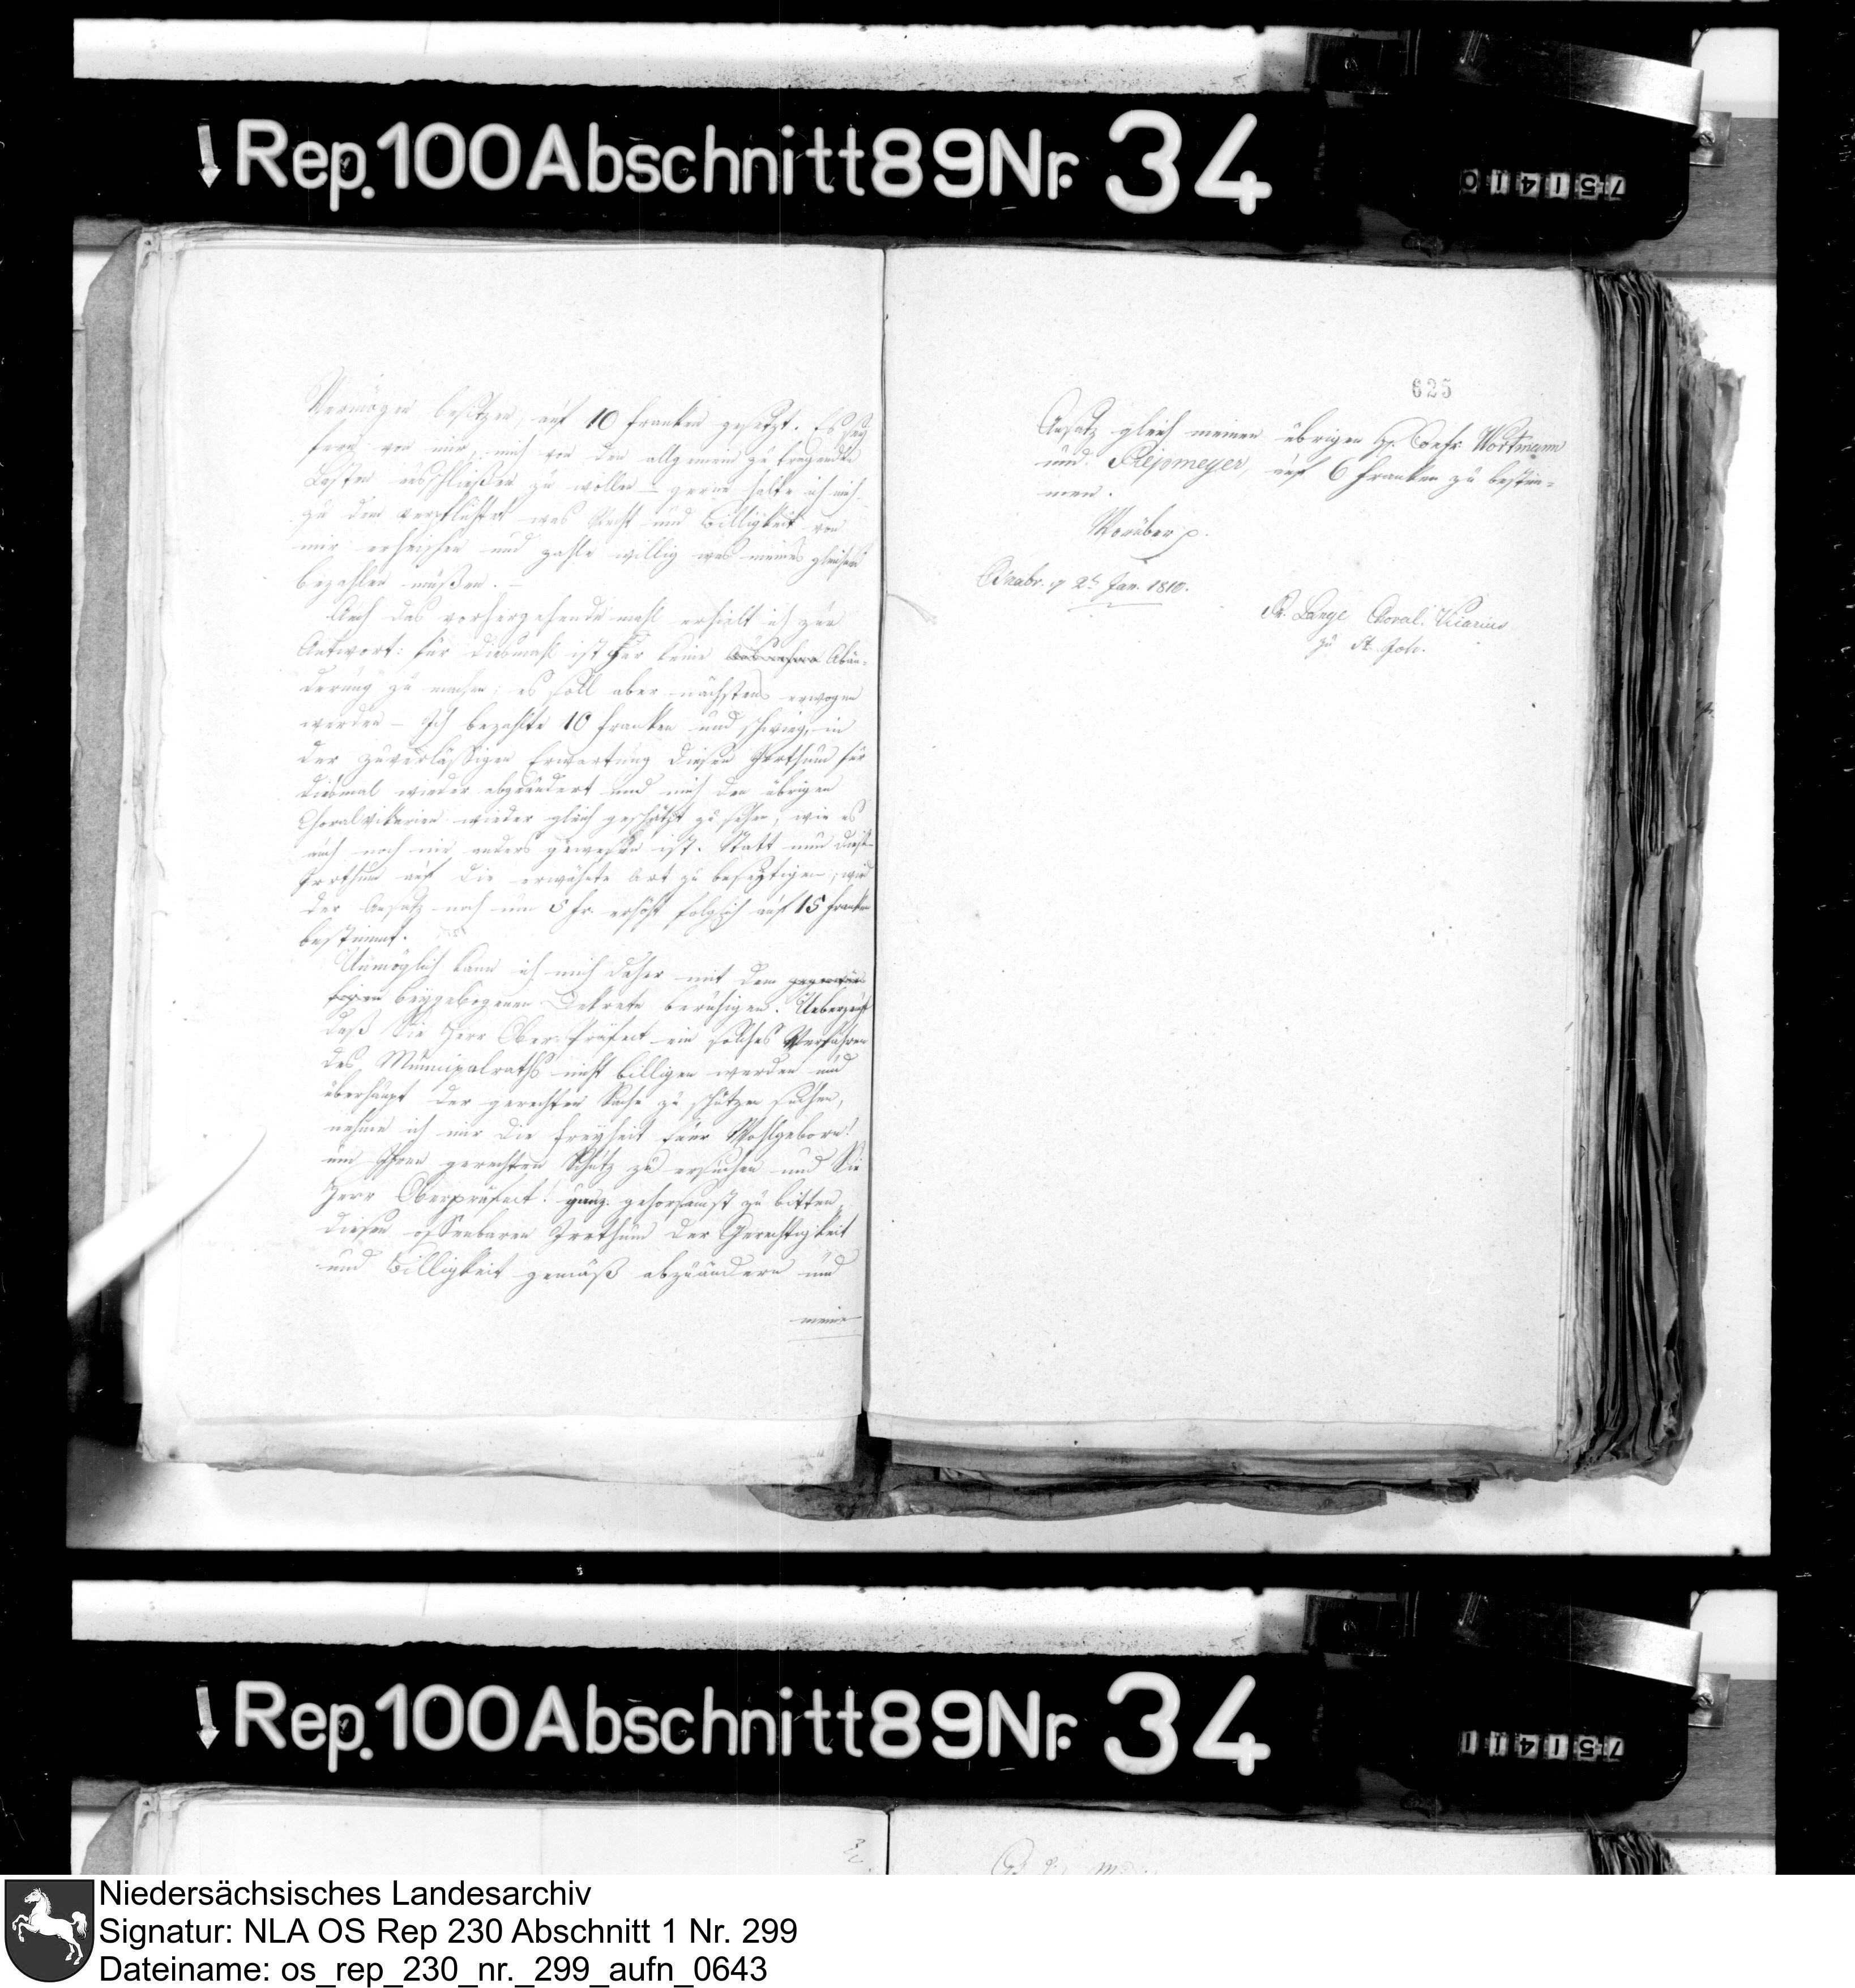 Rep. 100 Abschnitt 89 Nr. 34
751410
Vermögen besitzen, auf 10 Franken gesetzt. Es sey
fern von mir, mich von den allgemein zu tragenden
Lasten ausschließen zu wollen – gerne halte ich mich
zu dem verpflichtet was Recht und Billigkeit von
mir erheischen und zahle willig was meines gleichen
bezahlen müßen. –
Auch das vorhergehende mahl erhielt ich zur
Antwort: für diesmahl ist hier keine Abän-
derung zu machen; es soll aber nächstens erwogen
werden – Ich bezahlte 10 Franken und schwieg, in
der zuverläßigen Erwartung diesen Irrthum für
diesmal wieder abgeändert und mich den übrigen
Choralvikarien wieder gleich geschätzt zu sehen, wie es
auch noch nie anders gewesen ist. Statt nun diesen
Irrthum auf die erwähnte Art zu beseitigen, wird
der Ansatz noch um 5 Fr. erhöht folglich auf 15 Franken
bestimmt.
Unmöglich kann ich mich daher mit dem
beygebogenen Dekrete beruhigen. Ueberzeugt
daß Sie Herr Ober Präfect ein solches Verfahren
des Municipalraths nicht billigen werden und
überhaupt der gerechten Sache zu schützen suchen,
nehme ich mir die Freyheit Euer Wohlgeborn!
um Ihren gerechten Schutz zu ersuchen und Sie
Herr Oberpräfect! ganz gehorsamst zu bitten,
diesen offenbaren Irrthum der Gerechtigkeit
und Billigkeit gemäß abzuändern und
meinen
625
Ansatz gleich meinen übrigen H. Confr. Wortmann
und Riepmeyer, auf 6 Franken zu bestim-
men.
Worüber p.
Osnabr. d 2t Jan. 1810.
Fr. Lange Choral. Vicarius
zu St. Joh.
Rep. 100 Abschnitt 89 Nr. 34
751411
Niedersächsisches Landesarchiv
Signatur: NLA OS Rep 230 Abschnitt 1 Nr. 299
Dateiname: os_rep_230_nr._299_aufn_0643